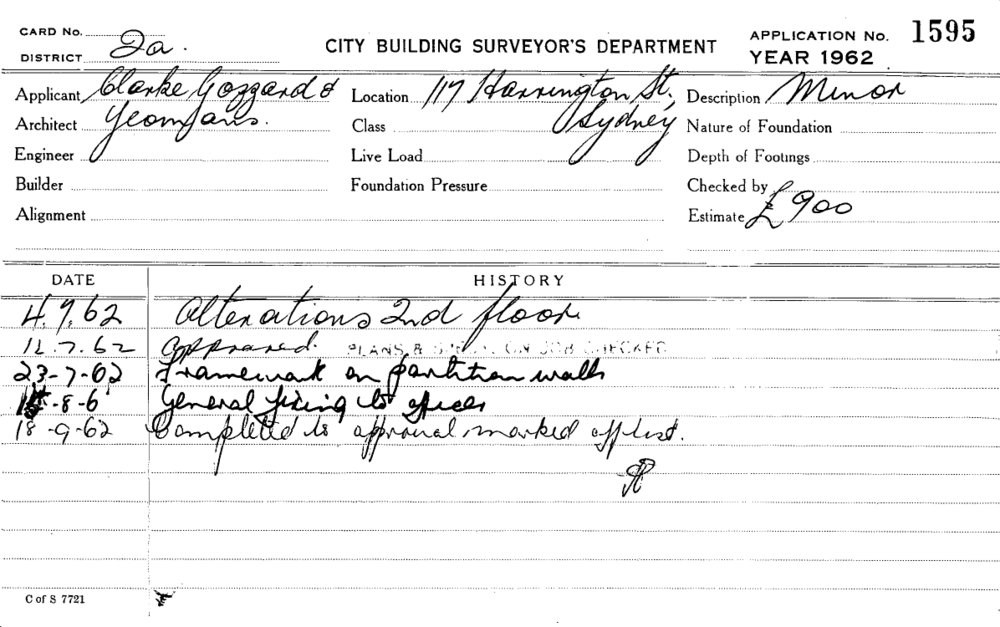 CARD No.
DISTRICT 2a.
CITY BUILDING SURVEYOR'S DEPARTMENT
APPLICATION No. 1595
YEAR 1962
Applicant Clarke Gazzard &
Location 117 Harrington St.,
Description Minor
Architect Yeomans.
Class Sydney
Nature of Foundation
Engineer
Live Load
Depth of Footings
Builder
Foundation Pressure
Checked by
Alignment
Estimate £900
DATE HISTORY
4.7.62 Alterations 2nd floor
12.7.62 Approved. PLANS & ON JOB CHECKED
23-7-62 Framework on partition walls
-8-6 General fixing to offices
18-9-62 Completed to approval marked off list.
C of S 7721